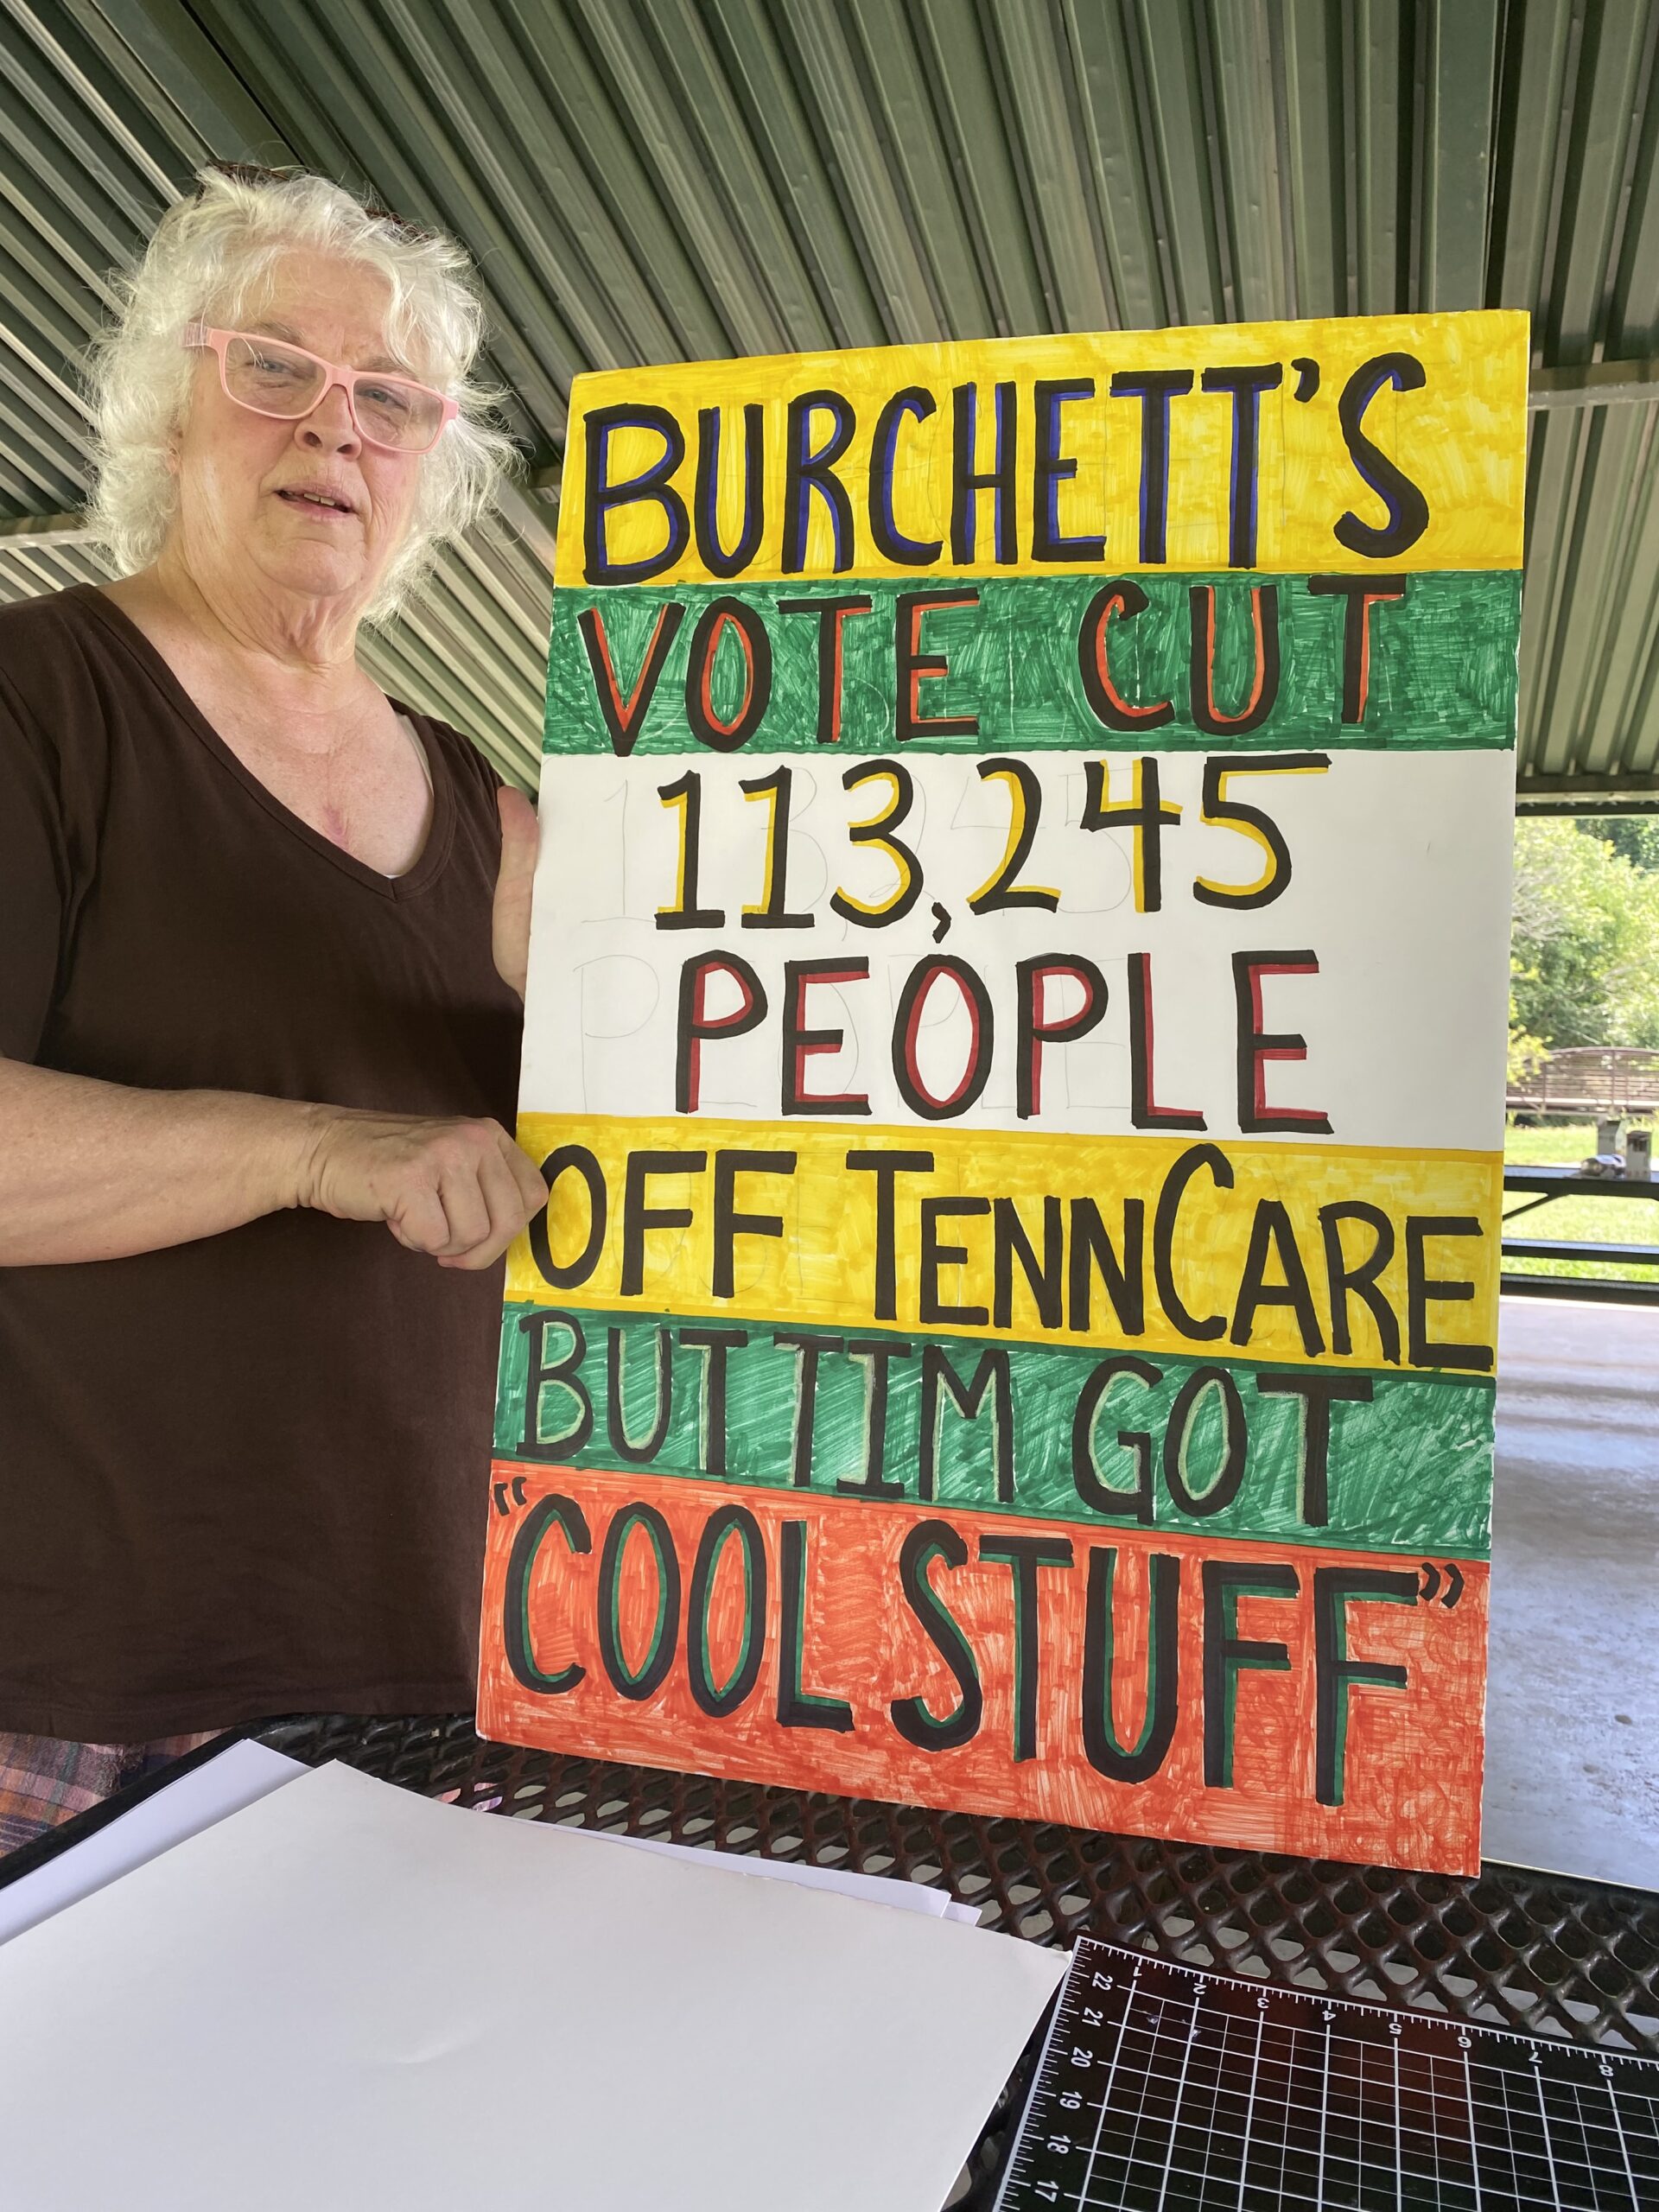 BURCHETT'S
VOTE CUT
113,245
PEOPLE
OFF TENNCARE
BUT TIM GOT
“COOL STUFF”
1 2 3 4 5 6 7 8
22
21
20
19
18
17